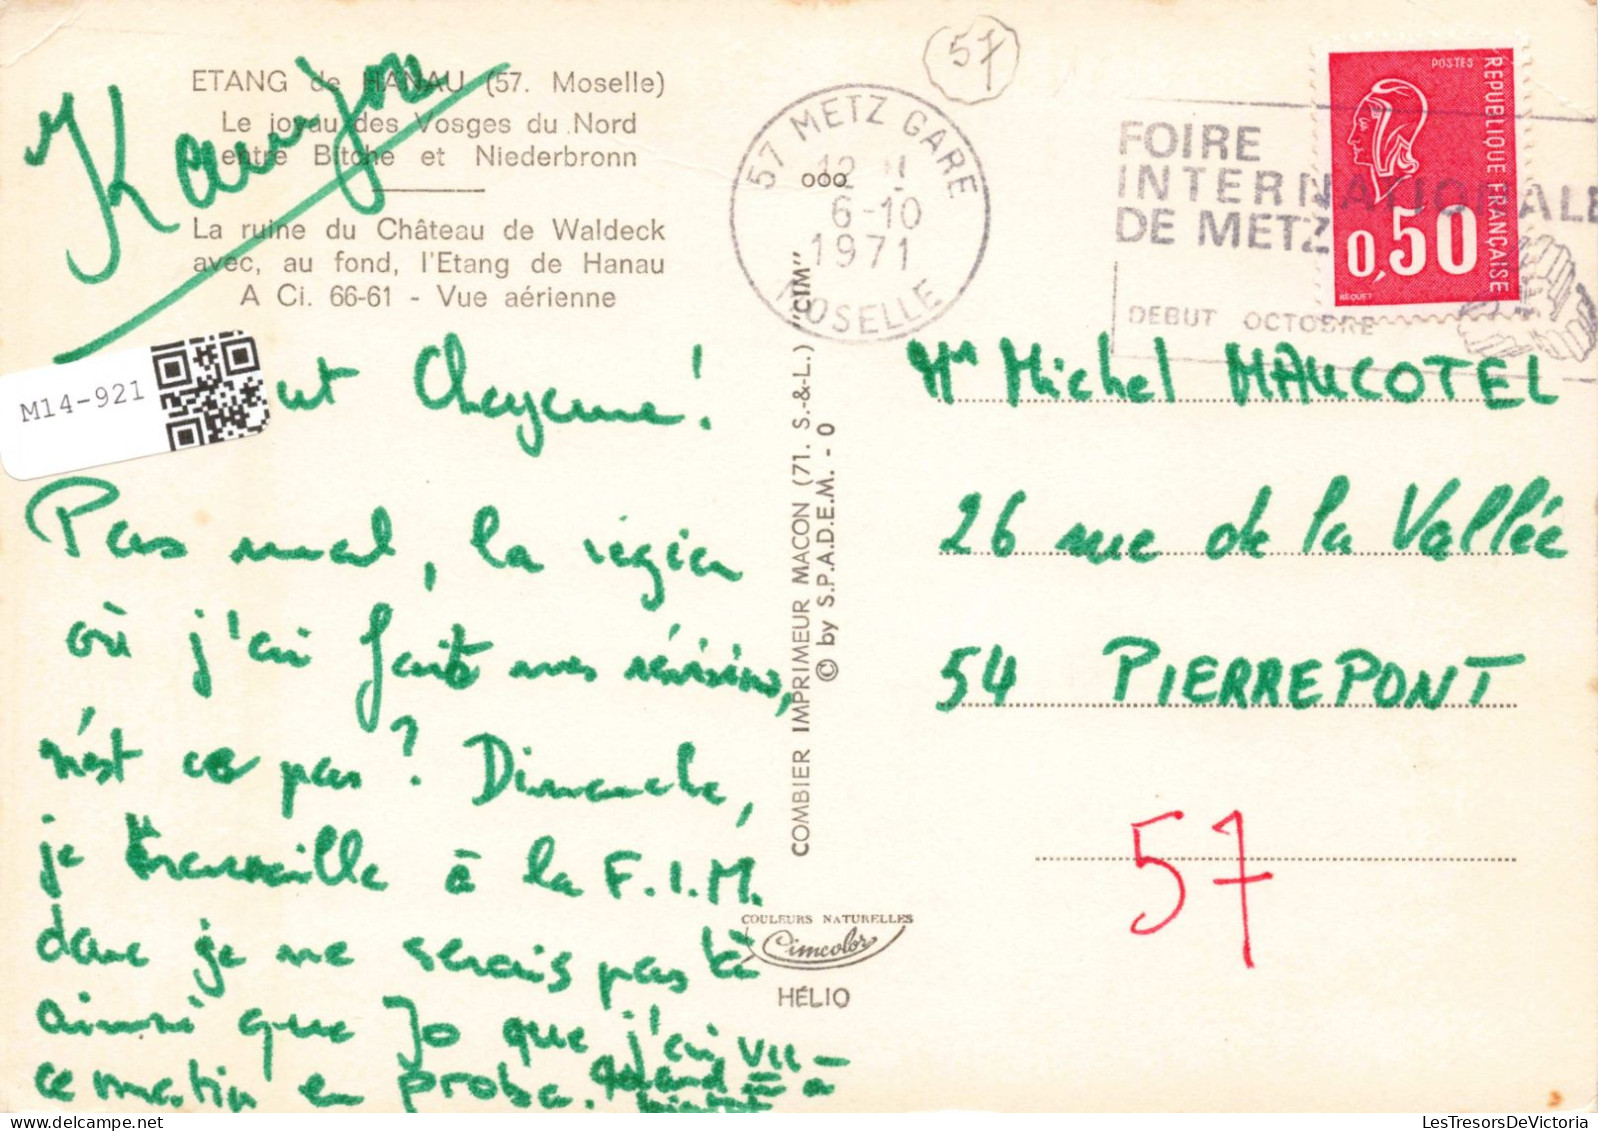 ETANG de HANAU (57. Moselle)
Le joyau des Vosges du Nord
entre Bitche et Niederbronn
La ruine du Château de Waldeck
avec, au fond, l'Etang de Hanau
A Ci. 66-61 - Vue aérienne
M14-921
ut Cheyenne!
Pas mal, la région
où j'ai fait mes révisions,
n'est ce pas? Dimanche,
je travaille à la F.I.M.
donc je ne serais pas là
ainsi que Jo que j'ai vu
ce matin en proba.
COMBIER IMPRIMEUR MACON (71. S.-&-L.) "CIM"
© by S.P.A.D.E.M. - O
COULEURS NATURELLES
Cimcolor
HÉLIO
57
57 METZ GARE
12 H
6-10
1971
MOSELLE
ooo
FOIRE
INTERNATIONALE
DE METZ
DEBUT OCTOBRE
POSTES
REPUBLIQUE FRANÇAISE
0,50
BEQUET
Mr Michel MAUCOTEL
26 rue de la Vallée
54 PIERREPONT
57
LesTresorsDeVictoria.com